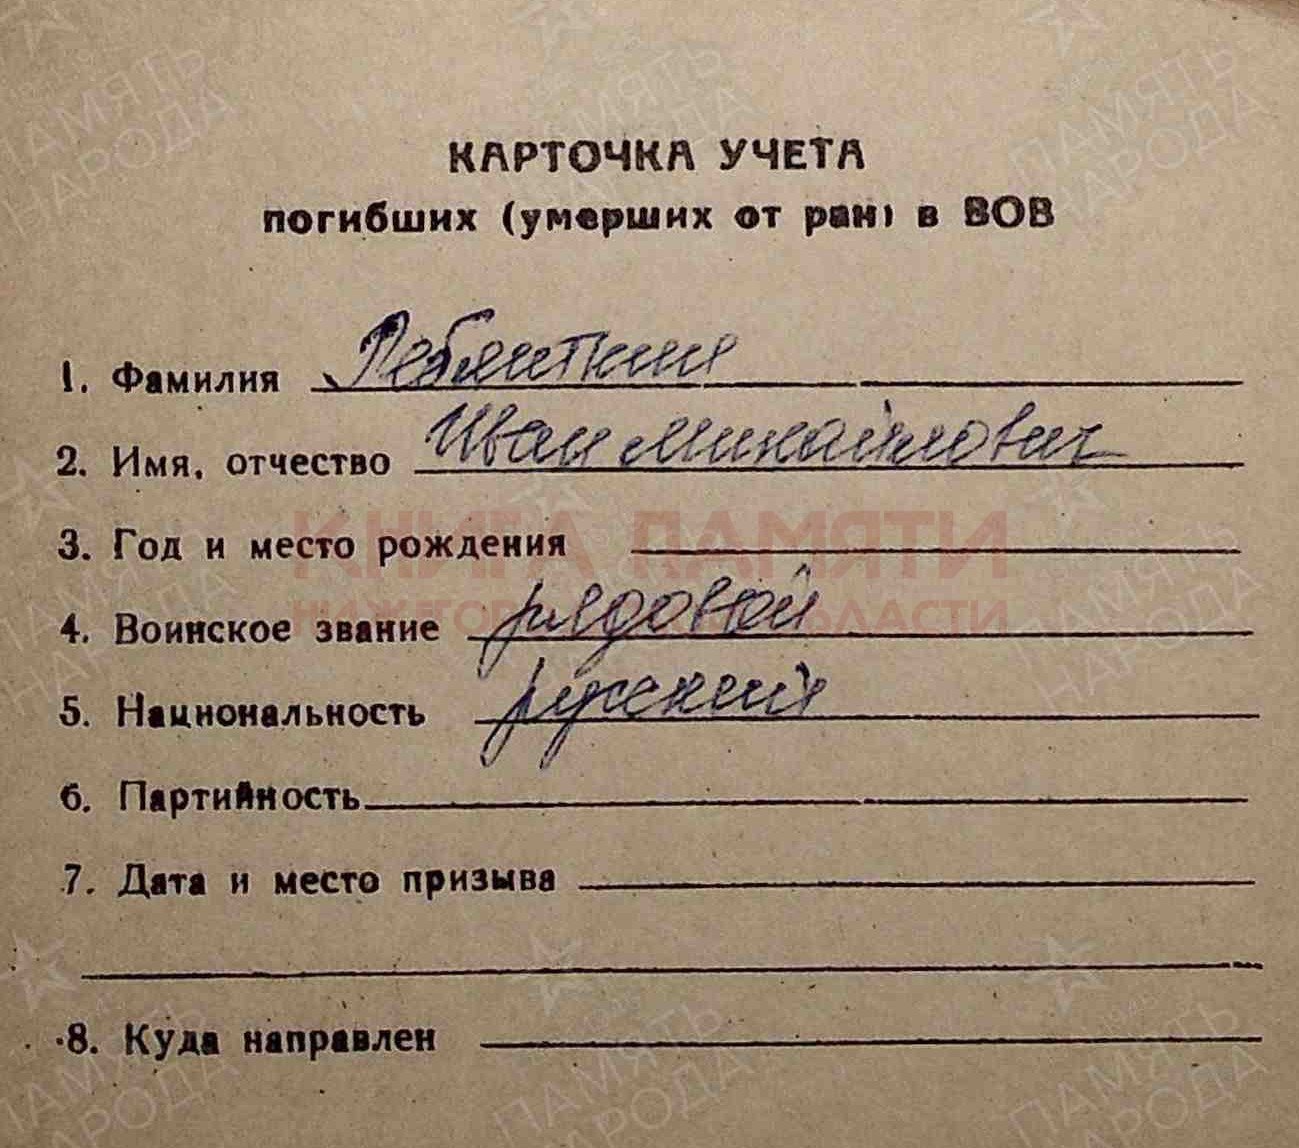 КАРТОЧКА УЧЕТА
погибших (умерших от ран) в ВОВ
1. Фамилия Ребяткин
2. Имя, отчество Иван Михайлович
КНИГА ПАМЯТИ
3. Год и место рождения
НИЖЕГОРОДСКОЙ ОБЛАСТИ
4. Воинское звание рядовой
5. Национальность русский
6. Партийность
7. Дата и место призыва
8. Куда направлен
ПАМЯТЬ НАРОДА